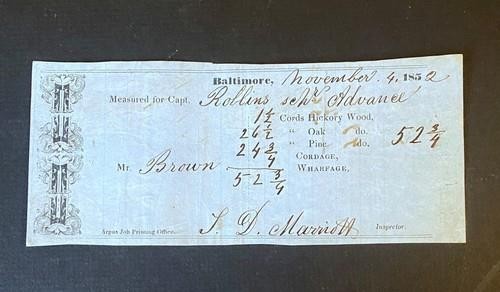 Baltimore, November 4, 1852
Measured for Capt. Rollins schr Advance
1 1/2 Cords Hickory Wood,
26 1/2 " Oak do. 52 3/4
24 3/4 " Pine do.
Cordage,
Mr. Brown Wharfage,
52 3/4
S. D. Marriott Inspector.
Argus Job Printing Office.